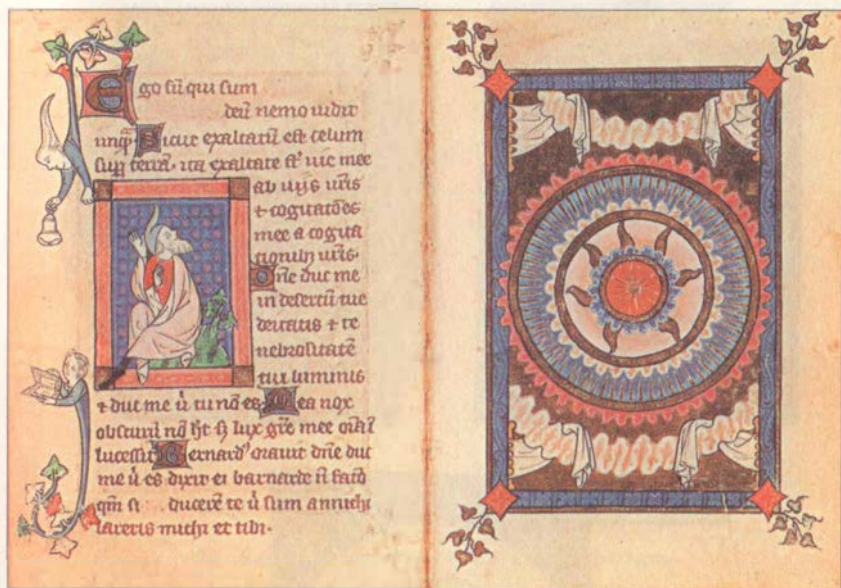 Ego sū qui sum
deū nemo vidit
unq̄. Sicut exaltatū est celum
sup terrā. ita exaltate sť vie mee
ab viis vr̄is
⁊ cogitatōes
mee a cogita
tionib; vr̄is.
Dn̄e duc me
in desertū tue
deitatis ⁊ te
nebrositatē
tui luminis
⁊ duc me ū tu nō es. Mea nox
obscurū nō ht
lucessit. Bernard' oravit dn̄e duc
me ū es dixit ei barnarde n̄ facio
qm̄ si ducerē te ū sum annichi
lareris michi et tibi.